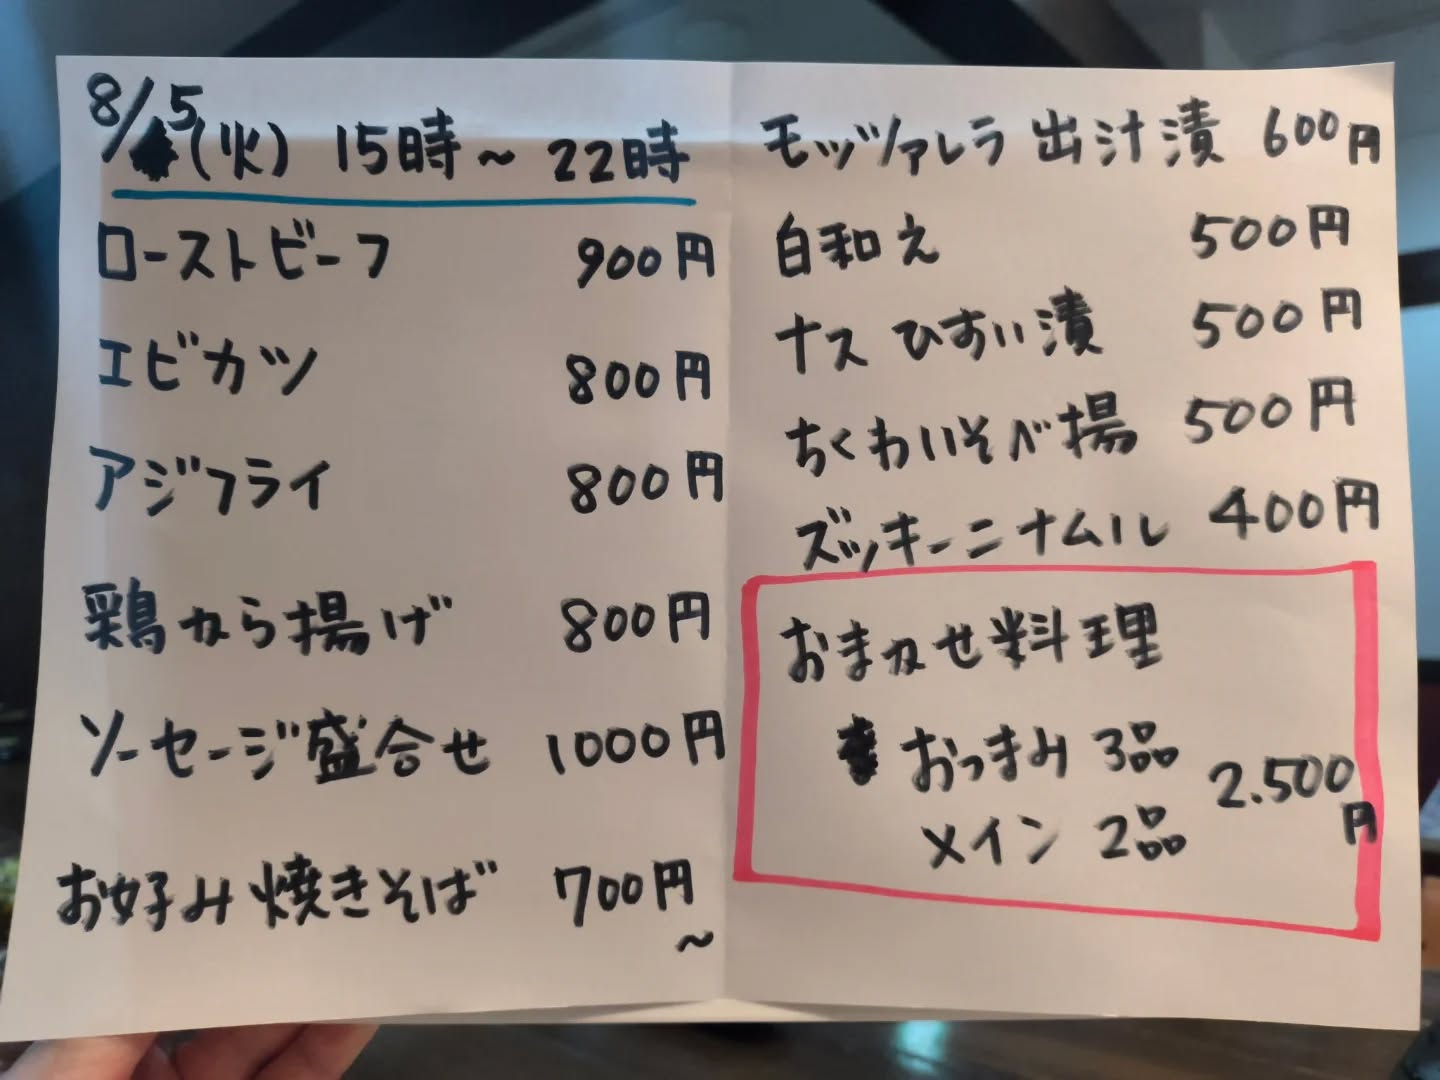 8/5(火) 15時～22時
ローストビーフ 900円
エビカツ 800円
アジフライ 800円
鶏から揚げ 800円
ソーセージ盛合せ 1000円
お好み焼きそば 700円～
モッツァレラ出汁漬 600円
白和え 500円
ナスひすい漬 500円
ちくわいそべ揚 500円
ズッキーニナムル 400円
おまかせ料理
おつまみ 3品
メイン 2品
2.500円